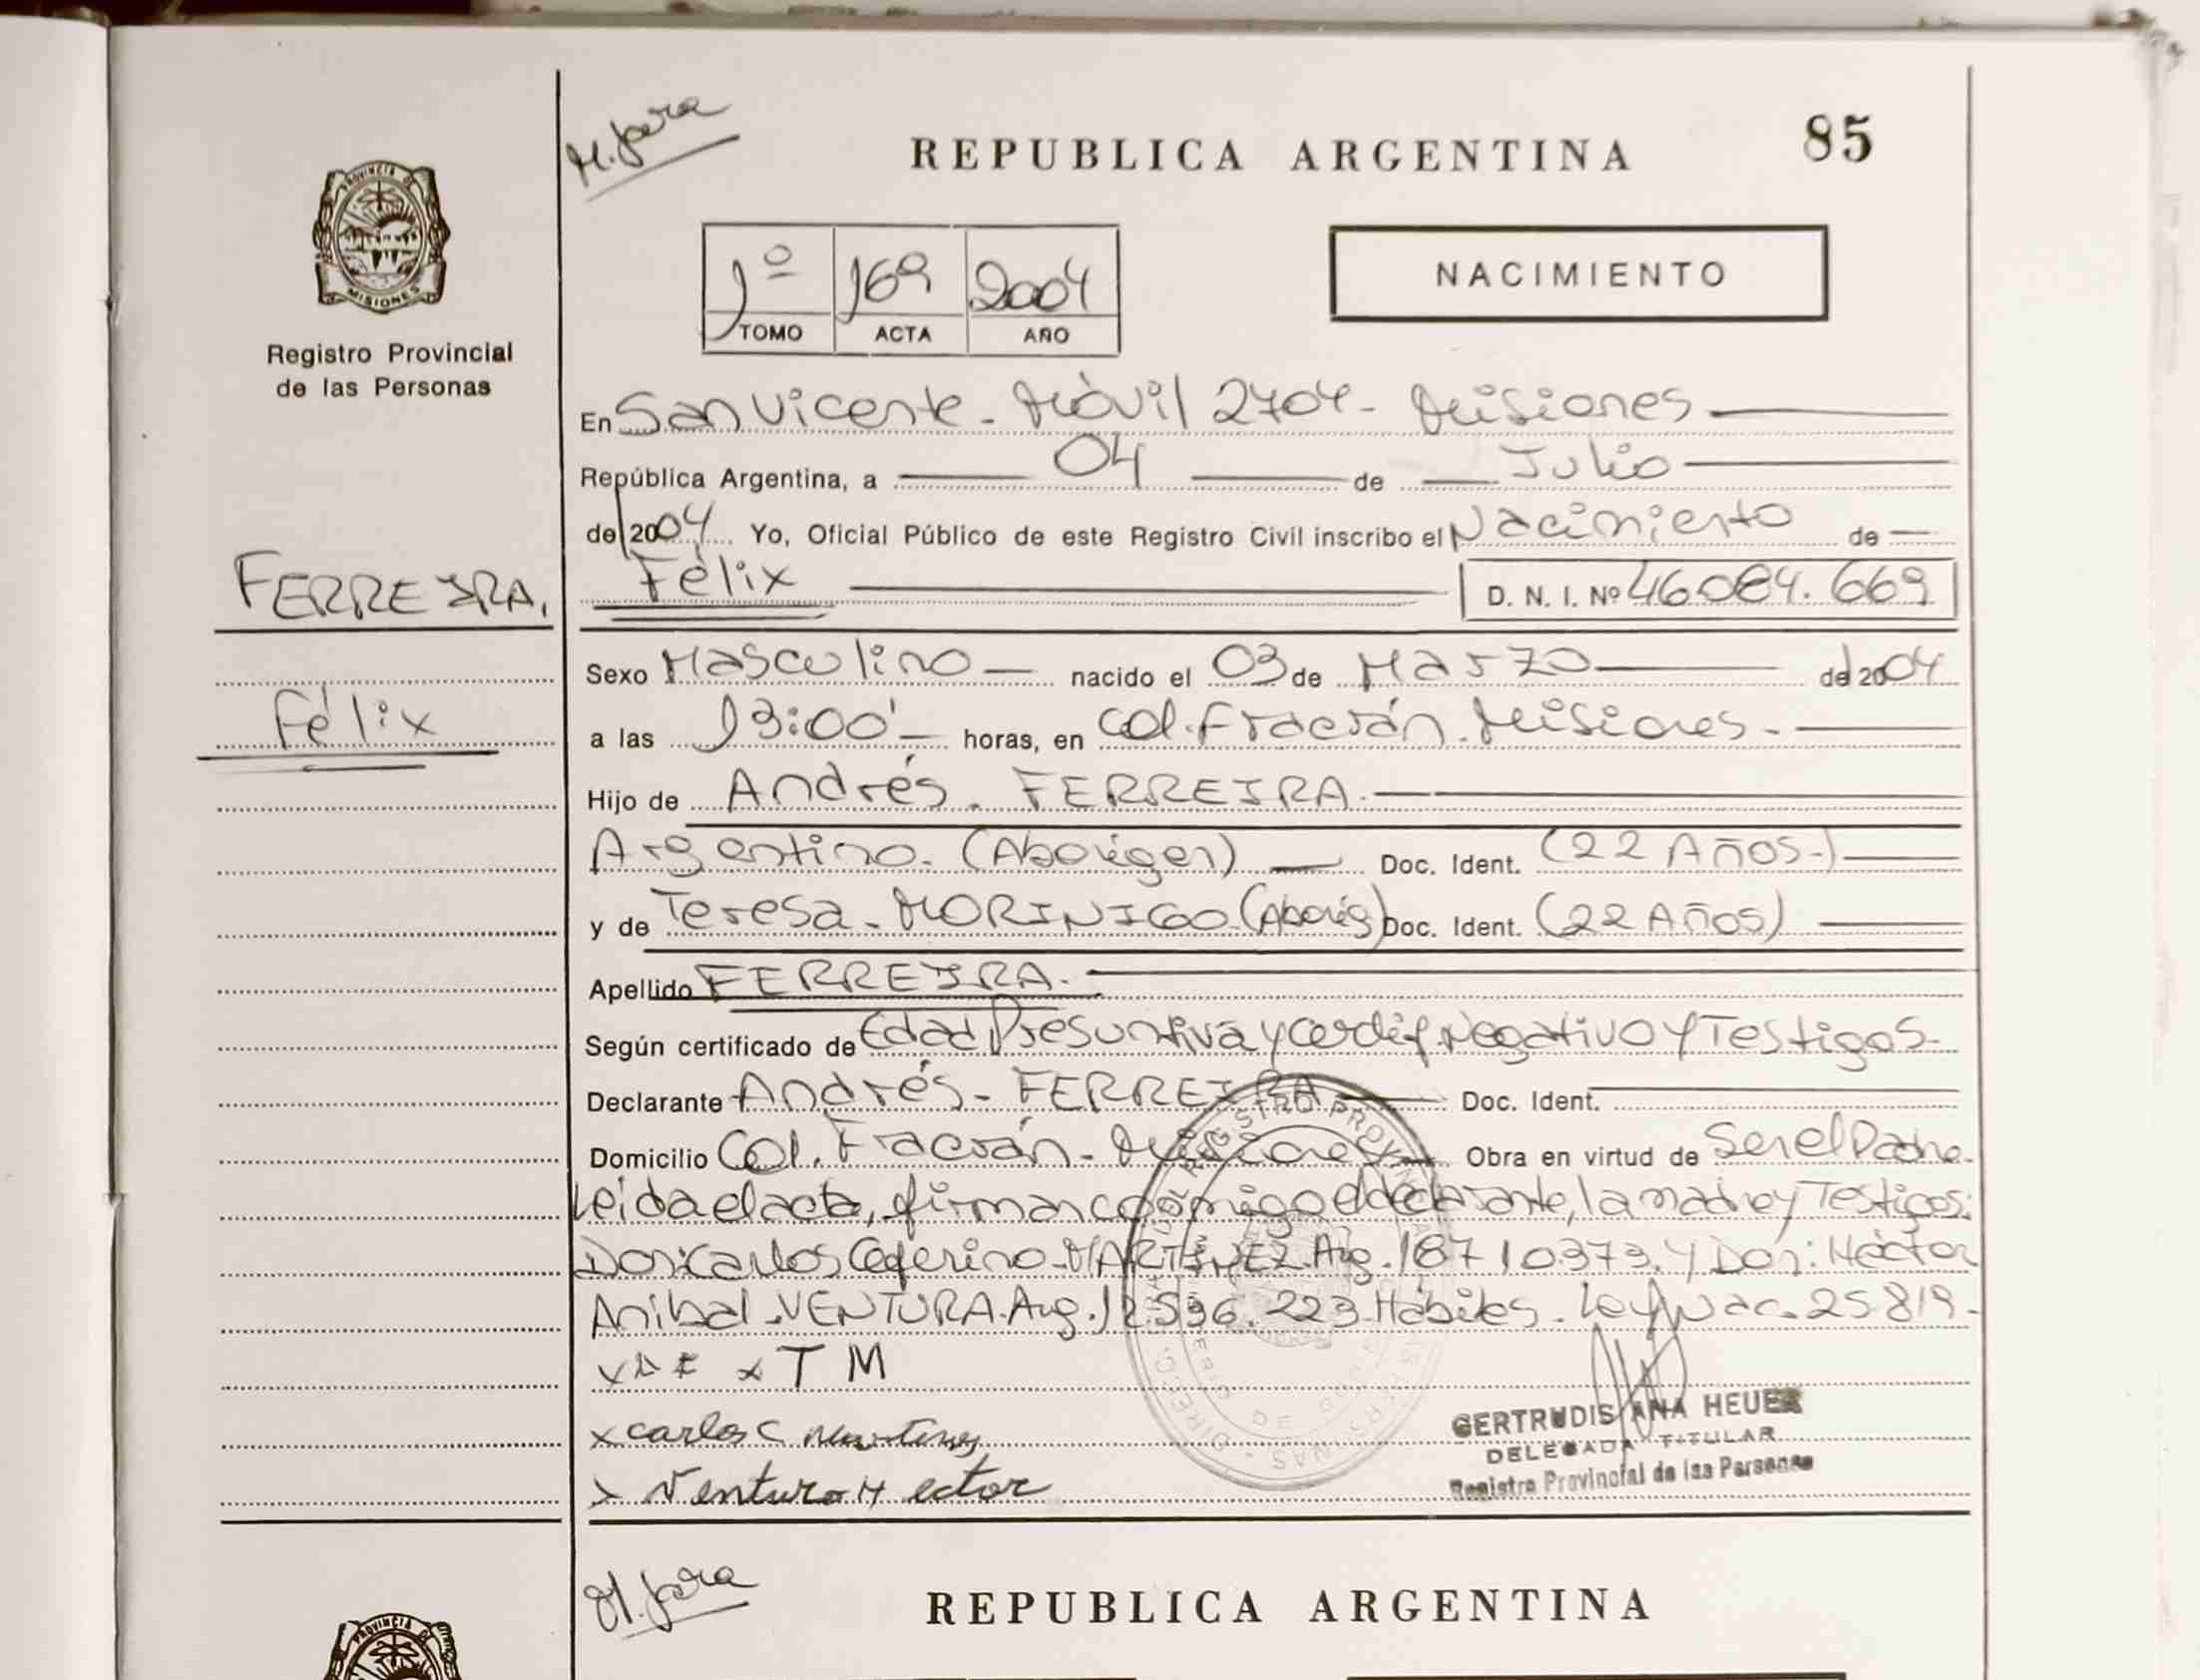 M. Jara
REPUBLICA ARGENTINA
85
PROVINCIA DE
MISIONES
Registro Provincial
de las Personas
1º 169 2004
TOMO ACTA AÑO
NACIMIENTO
En San Vicente - Móvil 2704 - Misiones
República Argentina, a 04 de Julio
de 2004 Yo, Oficial Público de este Registro Civil inscribo el Nacimiento de
FERREIRA, Félix D. N. I. Nº 46.084.669
Félix
Sexo Masculino nacido el 03 de Marzo de 2004
a las 13:00 horas, en Col. Fracrán - Misiones -
Hijo de Andrés - FERREIRA.
Argentino - (Aborigen) Doc. Ident. (22 Años-)
y de Teresa - MORINIGO (Aborig) Doc. Ident. (22 Años)
Apellido FERREIRA.
Según certificado de Edad Presuntiva y Certif. Negativo y Testigos -
Declarante Andrés - FERREIRA Doc. Ident.
Domicilio Col. Fracrán - Misiones Obra en virtud de Ser el Padre -
Leida el acta, firman conmigo el declarante, la madre y Testigos:
Don: Carlos Ceferino - MARTINEZ Arg. 18710.373. y Don: Héctor
Anibal - VENTURA. Arg. 12.596.223 Hábiles - Ley Nac. 25.819 -
x A F x T M
x Carlos C Martinez
x Ventura H ector
GERTRUDIS ANA HEUER
DELEGADA TITULAR
Registro Provincial de las Personas
M. Jara
REPUBLICA ARGENTINA
PROVINCIA